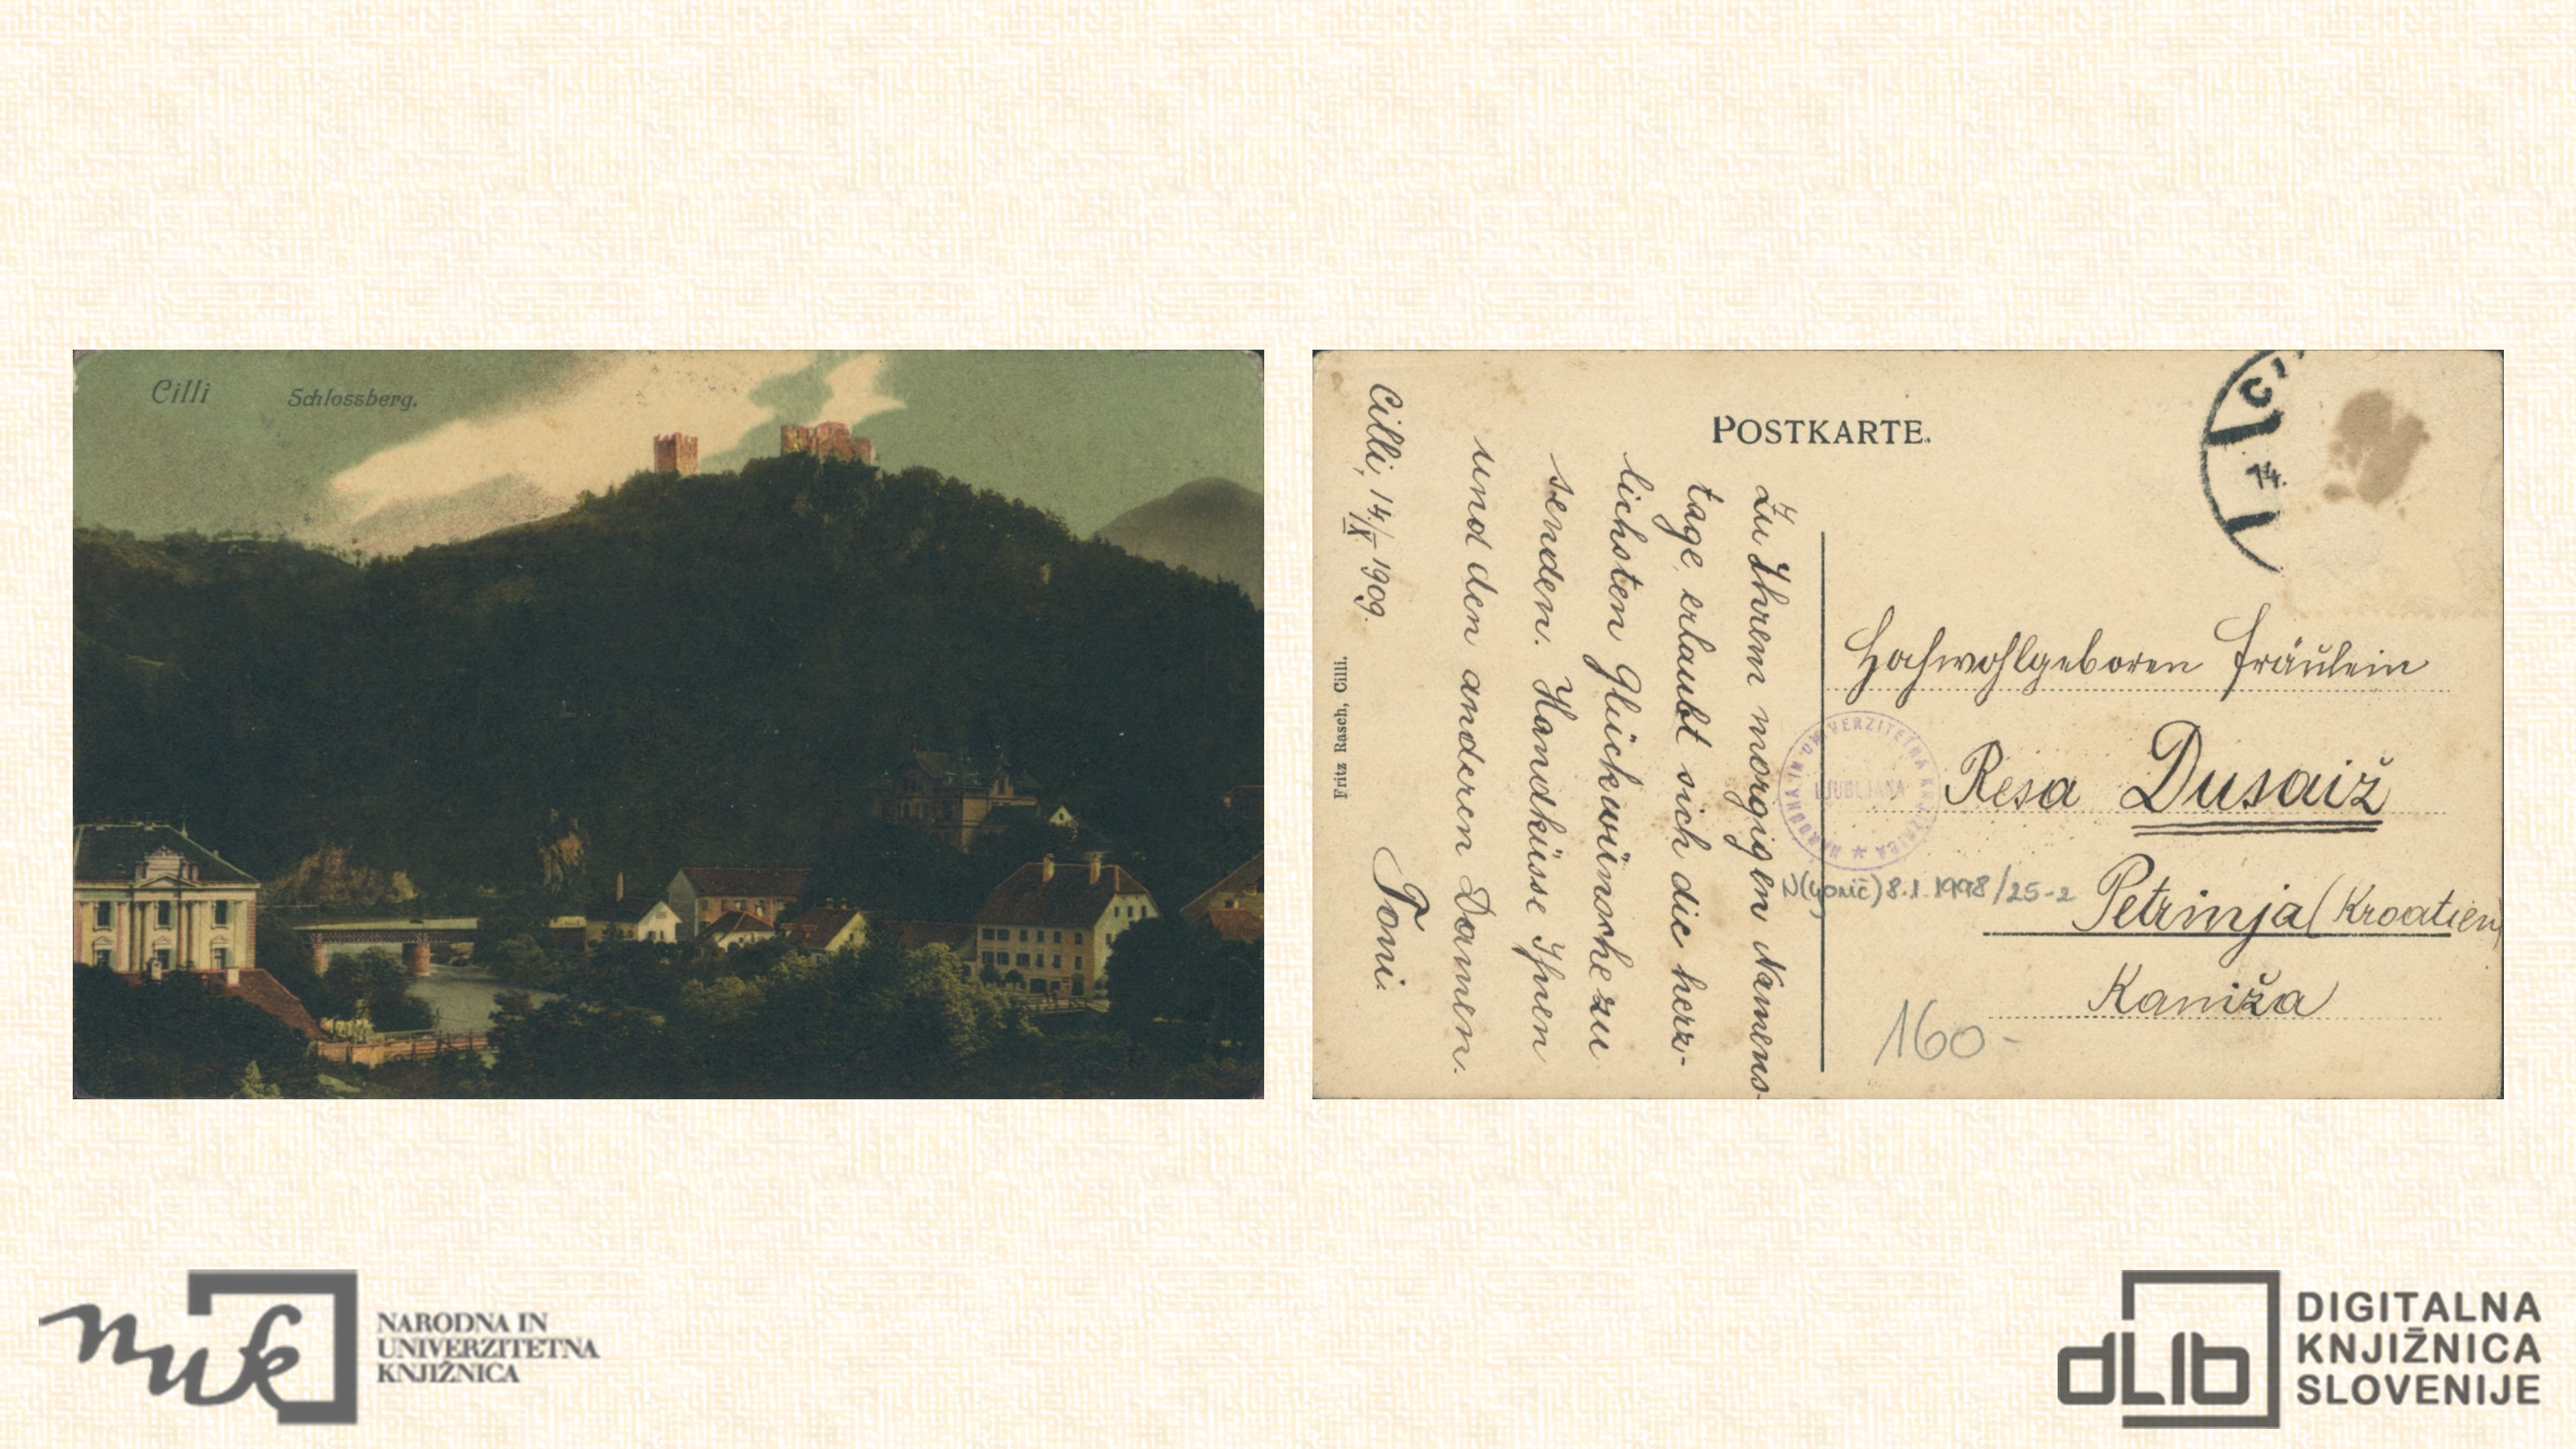 Cilli Schlossberg.
POSTKARTE.
Zu Ihrem morgigen Namens-
tage erlaubt sich die herz-
lichsten Glückwünsche zu
senden. Handküsse Ihnen
und den anderen Damen.
Toni.
Cilli, 14/X 1909.
Fritz Rasch, Cilli.
14.
Hochwohlgeboren Fräulein
Resa Dusaiž
Petrinja (Kroatien)
Kaniža
NARODNA IN UNIVERZITETNA KNJIŽNICA
LJUBLJANA
8.1.1998/25-2
160-
nuk
NARODNA IN
UNIVERZITETNA
KNJIŽNICA
dLib
DIGITALNA
KNJIŽNICA
SLOVENIJE